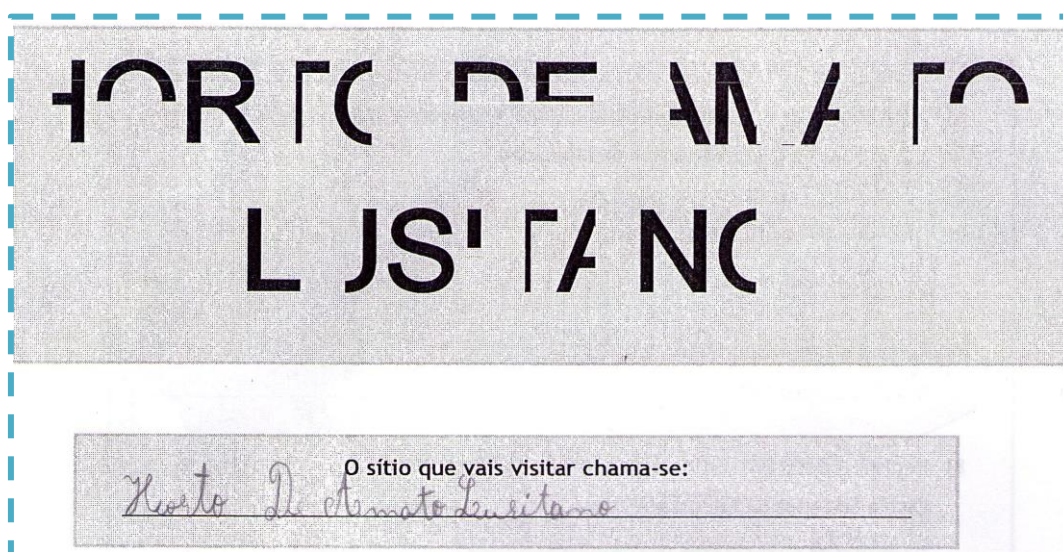 HORTO DE AMATO
LUSITANO
O sítio que vais visitar chama-se:
Horto De Amato Lusitano